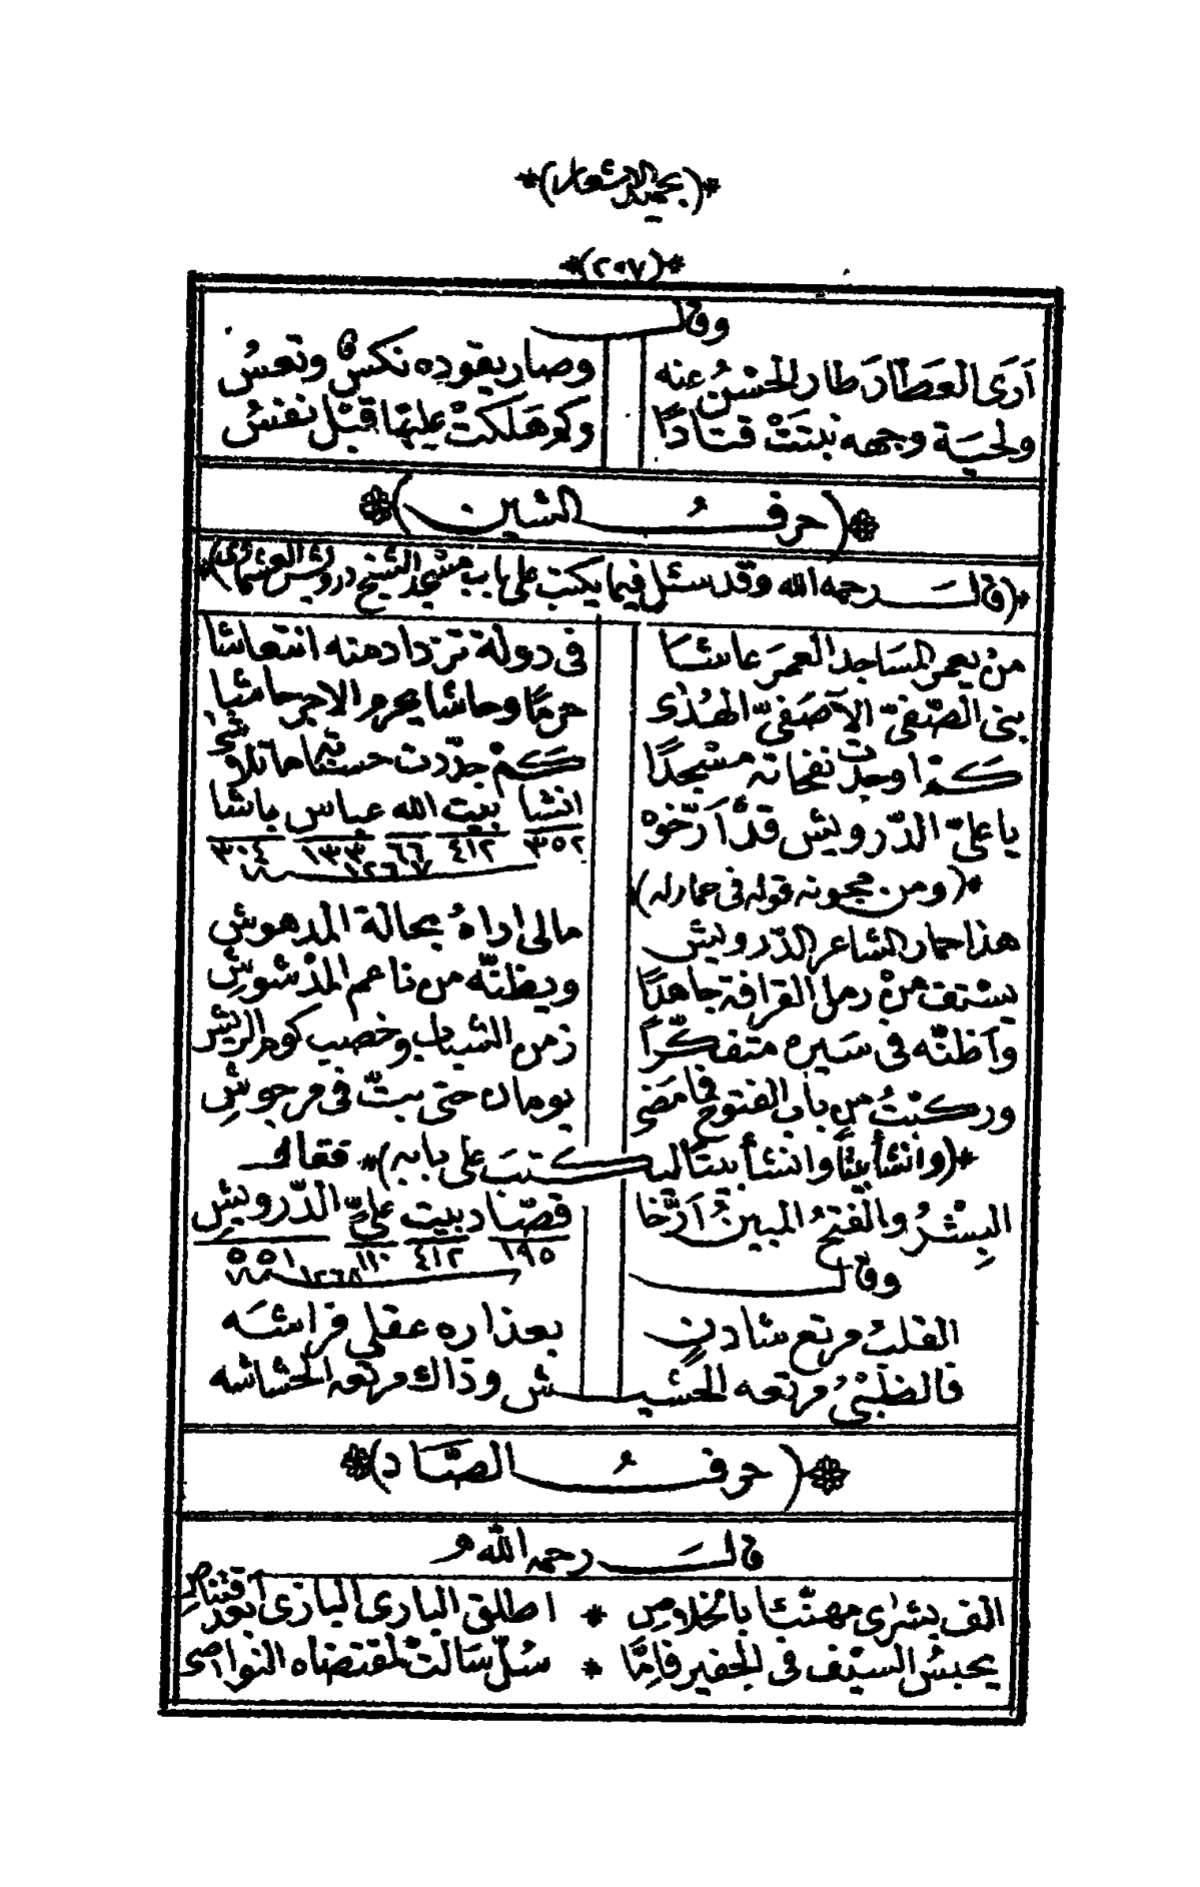 *(بحميد الاشعار)*
*(٢٠٧)*
وقال
اَرَى العَطَّارَ طار الحُسْنُ عنه وصار يقوده نكسٌ وتعسُ
ولحيَة وجهه نبتَتْ قتادًا وكم هَلَكتْ عليها قبْل نفسُ
*(حرفُ الشين)*
*(قالَ رحمه الله وقد سئل فيما يكتب على باب مسجد الشيخ درويش العشماوى)*
منْ يعمر المسَاجد العمرَ عاشَا فى دولة تزداد منه انتعاشا
بنى الصّفىّ الآصَفىّ الهُدٰى حرمًا وحاشا يحرم الاجر حاشا
كمْ اوجدتْ نفحاته مسْجدًا كمْ جدّدت حسناته ما تلاشى
يا علىّ الدّرويش قدْ اَرّخوْ انشا بيت الله عباس باشا
٣٥٢ ٤١٢ ٦٦ ١٣٣ ٣٠٤
١٢٦٧
*(ومن مجونه قوله فى حمار له)
هذا حمار الشاعر الدّرويش مالى اراهُ بحالة المدهوش
يستف منْ رمل القرافة جاهدًا ويظنّه من ناعم المدْشوشِ
واَظنّه فى سَيره متفكّرًا زمن الشباب وخصب كوم الريش
وركبْتُ من باب الفتوح فما مَضى يومان حتى بتّ فى مرجوشِ
*(وانشأ بيتًا وانشأ بيتًا ليكتبَ على بابه)* فقال
البِشْرُ والفتحُ المبينُ اَرَّخا قصّاد بيت علىٍّ الدّرويشِ
١٩٥ ٤١٢ ١١٠ ٥٥١
١٢٦٨
وقال
القلبُ مرتع شادنٍ بعذاره عقلى فراشَه
فالظبْىُ مرتعه الحَشيش وذاك مرتعه الحشاشه
*(حرفُ الصَّاد)*
قالَ رحمه الله
الف بشرٰى مهنّئًا بالخلاصِ * اطلق البارى البازى بعد اقتناصِ
يحبسُ السيْف فى الجفير فاِمّا * سُلّ سَالتْ لمقتضاه النواصى